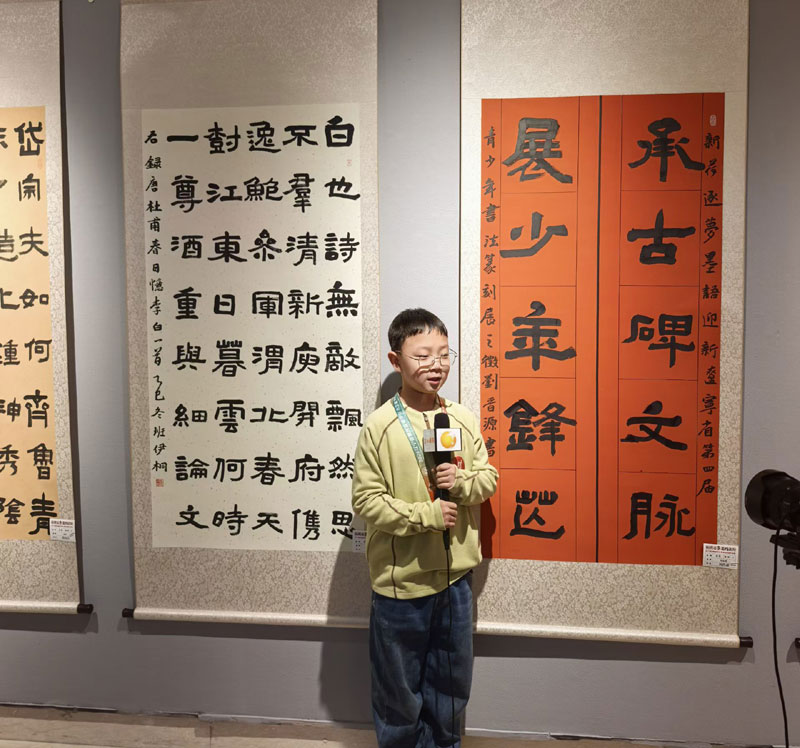 新荷逐夢墨語迎新遼寧省第四届
承古碑文脈
展少年鋒芒
青少年書法篆刻展之徵劉晋源書
白也詩無敵飄然思
不羣清新庾開府儁
逸鮑參軍渭北春天
對江東日暮雲何時
一尊酒重與細論文
右錄唐杜甫春日憶李白一首乙巳冬班伊桐
岱宗夫如何齊魯青
未了造化鍾神秀陰